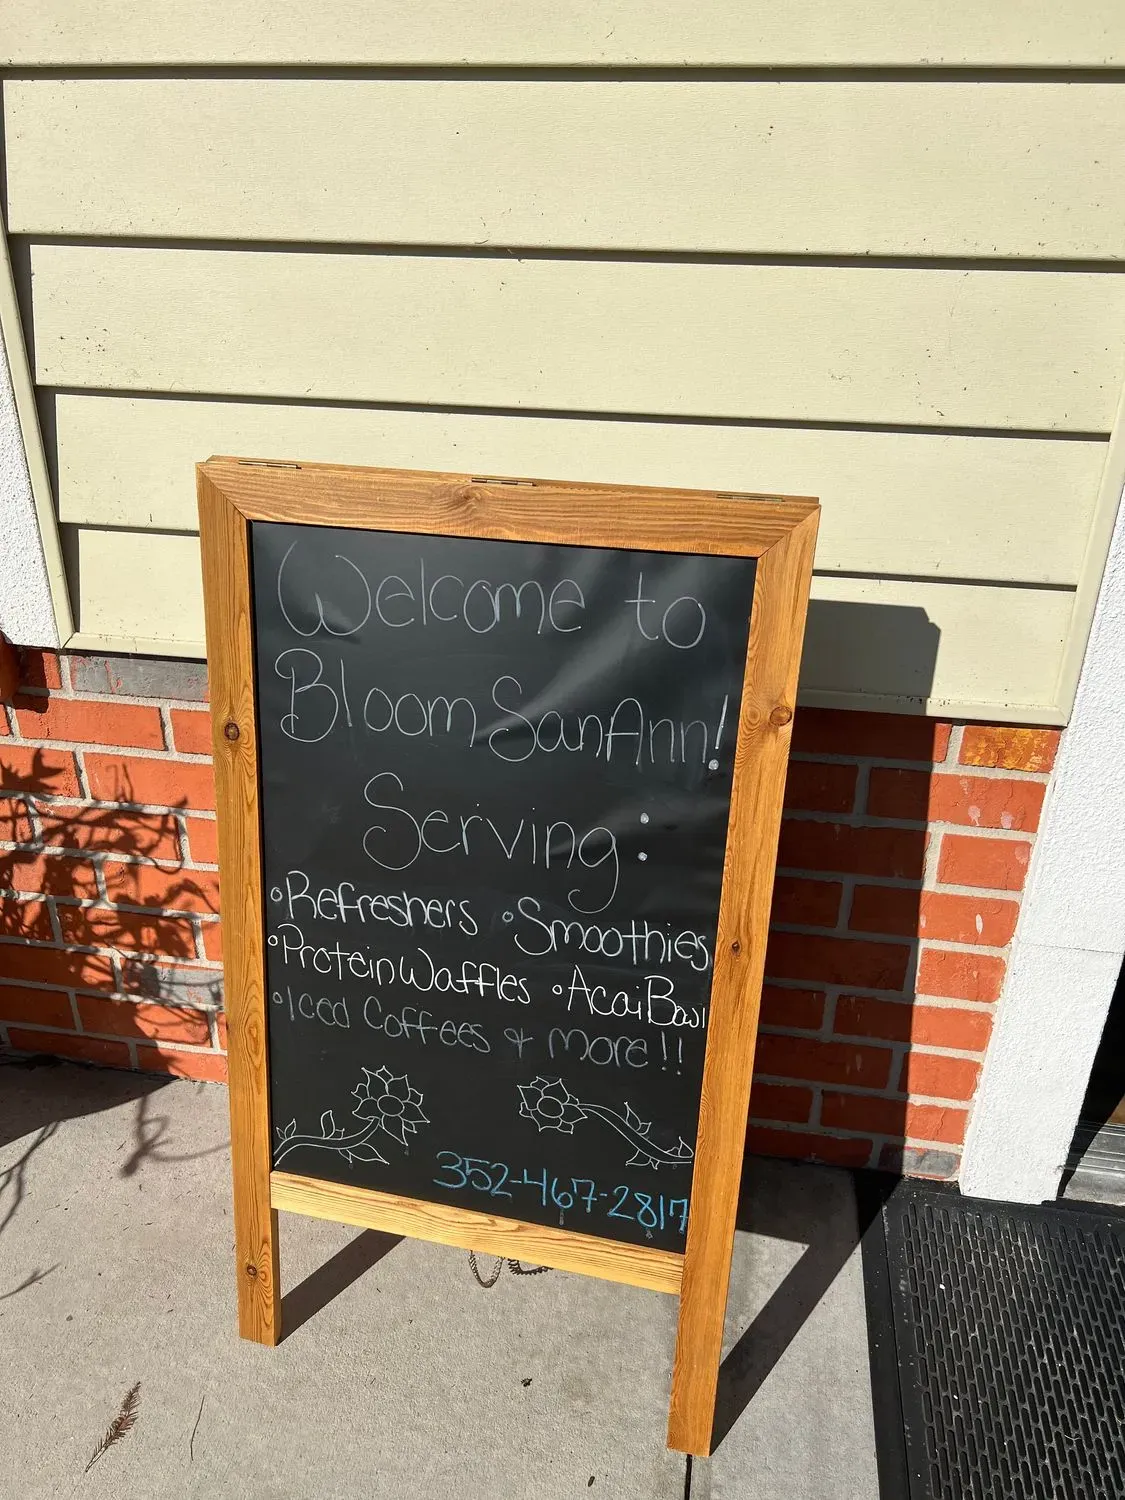 Welcome to
Bloom SanAnn!
Serving:
◦Refreshers ◦Smoothies
◦Protein Waffles ◦Acai Bowl
◦Iced Coffees & More!!
352-467-2817